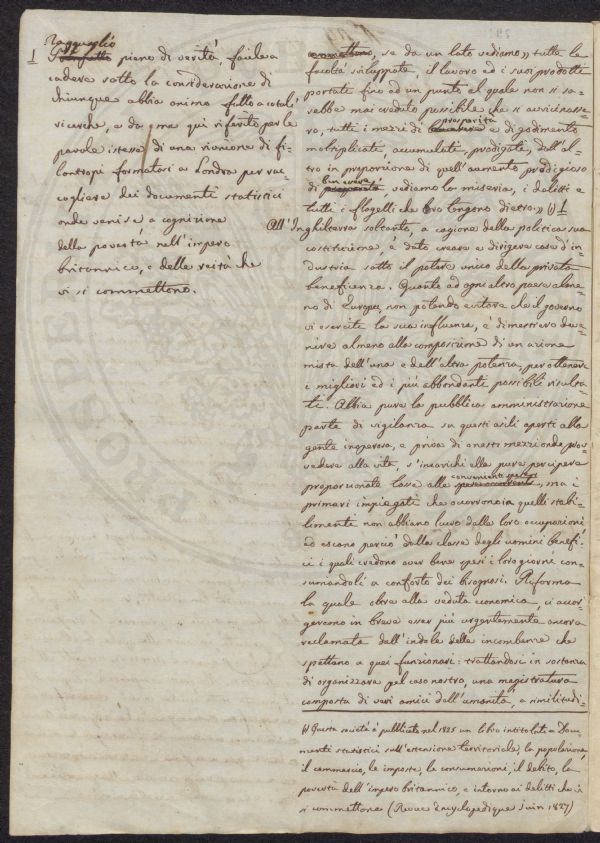 Ragguaglio
1 pieno di verità, facile a
cadere sotto la considerazione di
chiunque abbia animo fitto a cotali
ricerche, e da me qui riferito per le
parole istesse di una riunione di fi-
lantropi formatasi a Londra per rac-
cogliere dei documenti statistici
onde venire a cognizione
della povertà nell'impero
britannico, e delle reità che
vi si commettono.
commettono, se da un lato vediamo " tutte le
facoltà sviluppate, il lavoro ed i suoi prodotti
portate fino ad un punto al quale non si sa-
rebbe mai creduto possibile che si avvicinasse-
ro, tutti i mezzi di prosperità e di godimento
moltiplicati accumulati, prodigati, dall'al-
tro in proporzione di quell'aumento prodigioso
di ben essere vediamo la miseria, i delitti e
tutti i flagelli che loro tengono dietro. " (1) 1
All'Inghilterra soltanto, a cagione della politica sua
costituzione è dato creare e dirigere case d'in-
dustria sotto il potere unico della privata
beneficenza. Quanto ad ogni altro paese alme-
no di Europa, non potendo evitare che il governo
vi eserciti la sua influenza, è di mestiero deve-
nire almeno alla composizione di un azione
mista dell'una e dell'altra potenza, per ottenere
i migliori ed i più abbondanti possibili risulta-
ti. Abbia pure la pubblica amministrazione
parte di vigilanza su questi asili aperti alla
gente inoperosa, e priva di onesti mezzi onde prov-
vedere alla vita, s'incarichi ella pure percipere
proporzionate tasse alle convenienti , ma i
primari impiegati che occorrono in quelli stabi-
limenti non abbiano lucro dalle loro occupazioni
ed escano perciò dalla classe degli uomini benefi-
ci i quali credono aver bene spesi i loro giorni con-
sumandoli a conforto dei bisognosi. Riforma
la quale oltre alla veduta economica, ci accor-
geremo in breve esser più urgentemente ancora
reclamata dall'indole delle incombenze che
spettano a quei funzionari: trattandosi in sostanza
di organizzare pel caso nostro, una magistratura
composta di veri amici dell'umanità, a similitudi-
(1) Questa società à pubblicato nel 1825 un libro intitolato Docu-
menti statistici sull'estensione territoriale, la popolazione,
il commercio, le imposte, le consumazioni, il debito, la
povertà dell'impero britannico, e intorno ai delitti che vi
si commettono (Revue Encyclopedique Juin 1827)